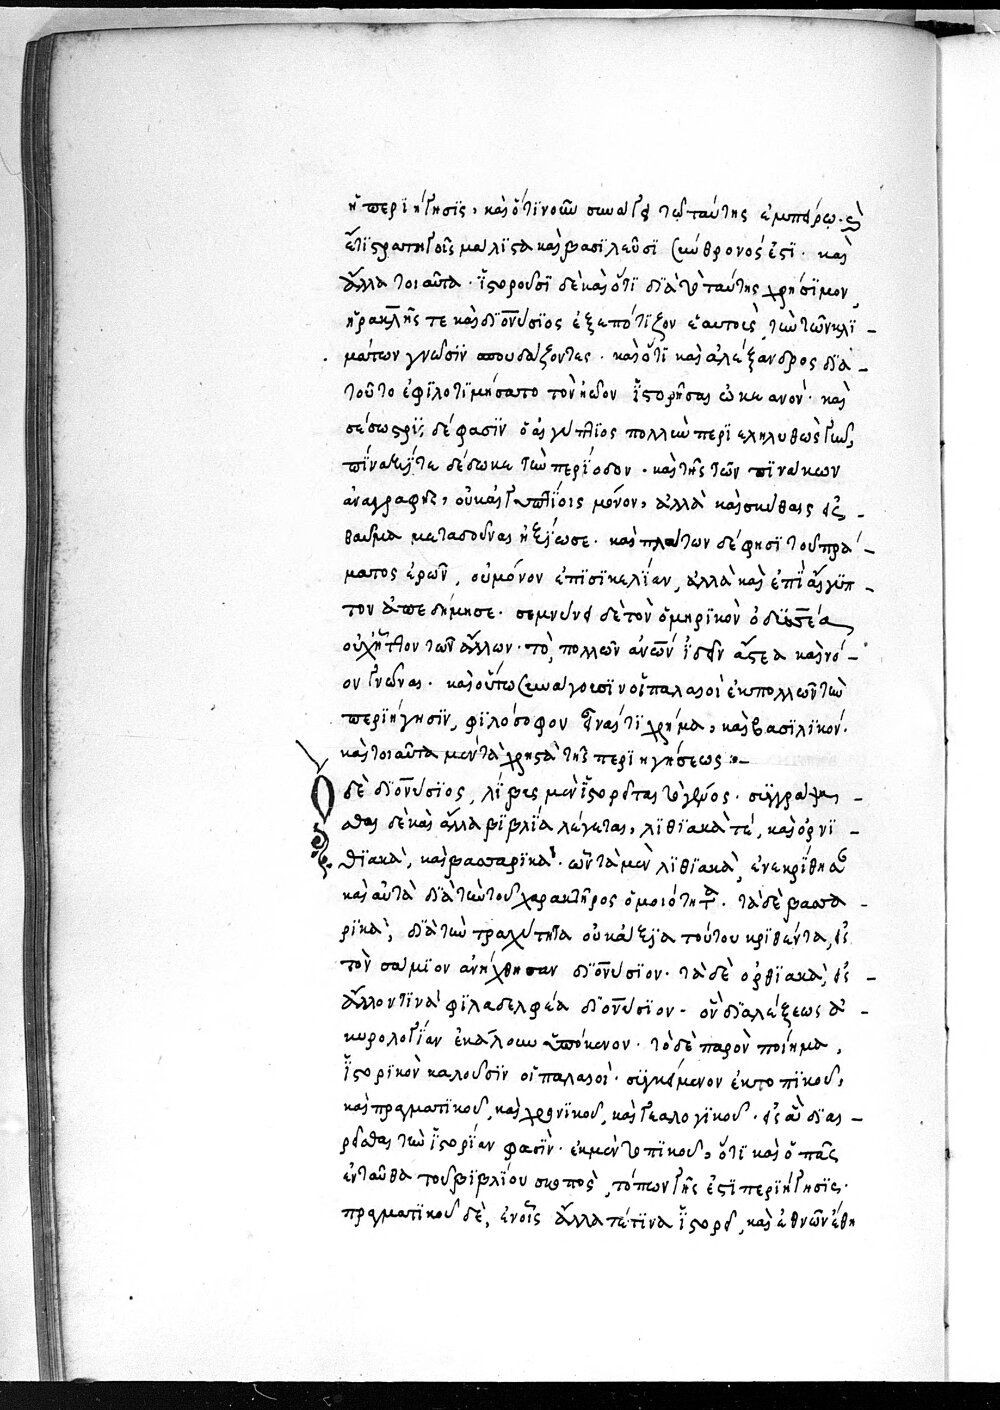 ἡ περιήγησις, καὶ ὅτι νοῦν συνάγει τῷ ταύτης ἐμπείρῳ· καὶ
ὅτι στρατηγοῖς μάλιστα καὶ βασιλεῦσι σύνθρονός ἐστι· καὶ
ἄλλα τοιαῦτα· ἱστοροῦσι δὲ καὶ ὅτι διὰ τὸ ταύτης χρήσιμον,
ἡρακλῆς τε καὶ διόνυσος ἐξετόπιζον ἑαυτοὺς, τὴν τῶν κλι-
μάτων γνῶσιν σπουδάζοντες· καὶ ὅτι καὶ ἀλέξανδρος διὰ
τοῦτο ἐφιλοτιμήσατο τὸν ἠῷον ἱστορῆσαι ὠκεανόν· καὶ
σέσωστρις δέ φασιν ὁ αἰγύπτιος πολλὴν περιεληλυθὼς γῆν,
πίναξί τε δέδωκε τὴν περίοδον· καὶ τῆς τῶν πινάκων
ἀναγραφῆς, οὐκ αἰγυπτίοις μόνον, ἀλλὰ καὶ σκύθαις εἰς
θαῦμα μεταδοῦναι ἠξίωσε· καὶ πλάτων δέ φησι τοῦ πρά-
ματος ἐρῶν, οὐ μόνον ἐπὶ σικελίαν, ἀλλὰ καὶ ἐπὶ αἴγυπ-
τον ἀπεδήμησε· σεμνύνει δὲ τὸν ὁμηρικὸν ὀδυσσέα
οὐχ ἧττον τῶν ἄλλων· τὸ, πολλῶν ἀνων ἰδεῖν ἄστεα καὶ νό-
ον γνῶναι· καὶ οὕτω συνάγουσιν οἱ παλαιοὶ ἐκ πολλῶν τὴν
περιήγησιν, φιλόσοφον εἶναί τι χρῆμα, καὶ βασιλικόν·
καὶ τοιαῦτα μὲν τὰ χρηστὰ τῆς περιηγήσεως :-
Ὁ δὲ διονύσιος, λίβυς μὲν ἱστορεῖται τὸ γένος· συγγράψα-
σθαι δὲ καὶ ἄλλα βιβλία λέγεται, λιθιακά τε, καὶ ὀρνι-
θιακὰ, καὶ βασσαρικά· ὧν τὰ μὲν λιθιακὰ, ἐνεκρίθησαν
καὶ αὐτὰ διὰ τὴν τοῦ χαρακτῆρος ὁμοιότητα· τὰ δὲ βασσα-
ρικὰ, διὰ τὴν τραχύτητα οὐκ ἄξια τούτου κριθέντα, εἰς
τὸν σάμιον ἀνήχθησαν διονύσιον· τὰ δὲ ὀρθιακὰ, εἰς
ἄλλον τινὰ φιλαδελφέα διονύσιον· ὃν διαλέξεως ἀ-
κυρολογίαν ἐκάλουν ὑποκείμενον· τὸ δὲ παρὸν ποίημα,
ἱστορικὸν καλοῦσιν οἱ παλαιοί· συγκείμενον ἐκ τοπικοῦ,
καὶ πραγματικοῦ, καὶ χρονικοῦ, καὶ γενεαλογικοῦ· εἰς ἃ διαι-
ρεῖσθαι τὴν ἱστορίαν φασίν· ἐκ μὲν τοπικοῦ, ὅτι καὶ ὁ πᾶς
ἐνταῦθα τοῦ βιβλίου σκοπὸς, τόπων γῆς ἐστι περιήγησις·
πραγματικοῦ δὲ, ἐν οἷς ἄλλα τέ τινα ἱστορεῖ, καὶ ἐθνῶν ἔθη